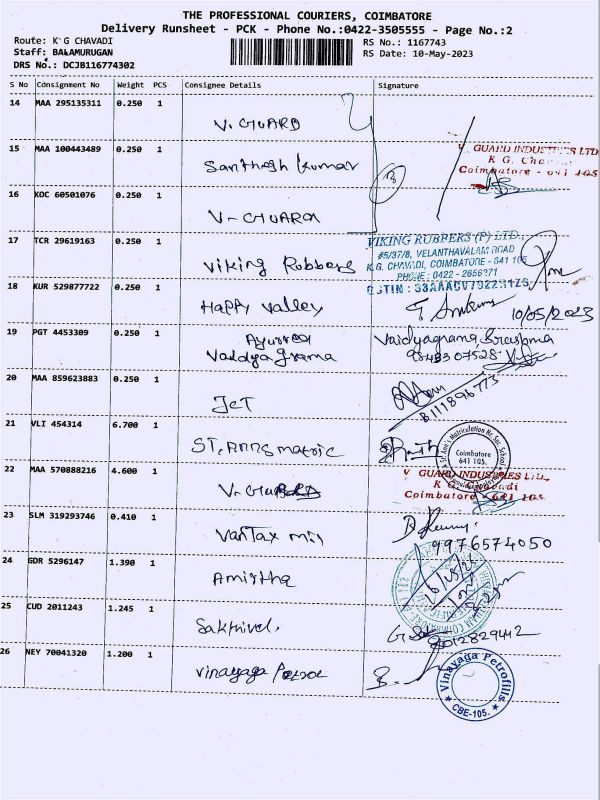 THE PROFESSIONAL COURIERS, COIMBATORE
Delivery Runsheet - PCK - Phone No.:0422-3505555 - Page No.:2
Route: K G CHAVADI
RS No.: 1167743
Staff: BALAMURUGAN
RS Date: 10-May-2023
DRS No.: DCJB116774302
S No Consignment No Weight PCS Consignee Details Signature
14 MAA 295135311 0.250 1
V. GUARD
15 MAA 100443489 0.250 1
V GUARD INDUSTRIES LTD
K G. Chavadi
Coimbatore - 641 105
Santhosh Kumar
16 KOC 60501076 0.250 1
V-GUARD
17 TCR 29619163 0.250 1
VIKING RUBBERS (P) LTD.,
#5/37/8, VELANTHAVALAM ROAD
K.G. CHAVADI, COIMBATORE - 641 105
Viking Rubbers
PHONE : 0422 - 2656371
GSTIN :
18 KUR 529877722 0.250 1
Happy valley
10/05/2023
19 PGT 4453309 0.250 1
Ayurved
Vaidyagrama
Vaidyagrama,
9843307528
20 MAA 859623883 0.250 1
JCT
8111896773
21 VLI 454314 6.700 1
ST. Anns matric
Coimbatore
641 105.
22 MAA 570888216 4.600 1
V GUARD INDUSTRIES Ltd.,
K G Chavadi
Coimbatore - 641 105
V. GUARD
23 SLM 319293746 0.410 1
VanTax mill
9976574050
24 GDR 5296147 1.390 1
Amirtha
25 CUD 2011243 1.245 1
Sakthivel.
9012829412
26 NEY 70041320 1.200 1
Vinayaga Petrol
Vinayaga Petrofills
CBE-105.